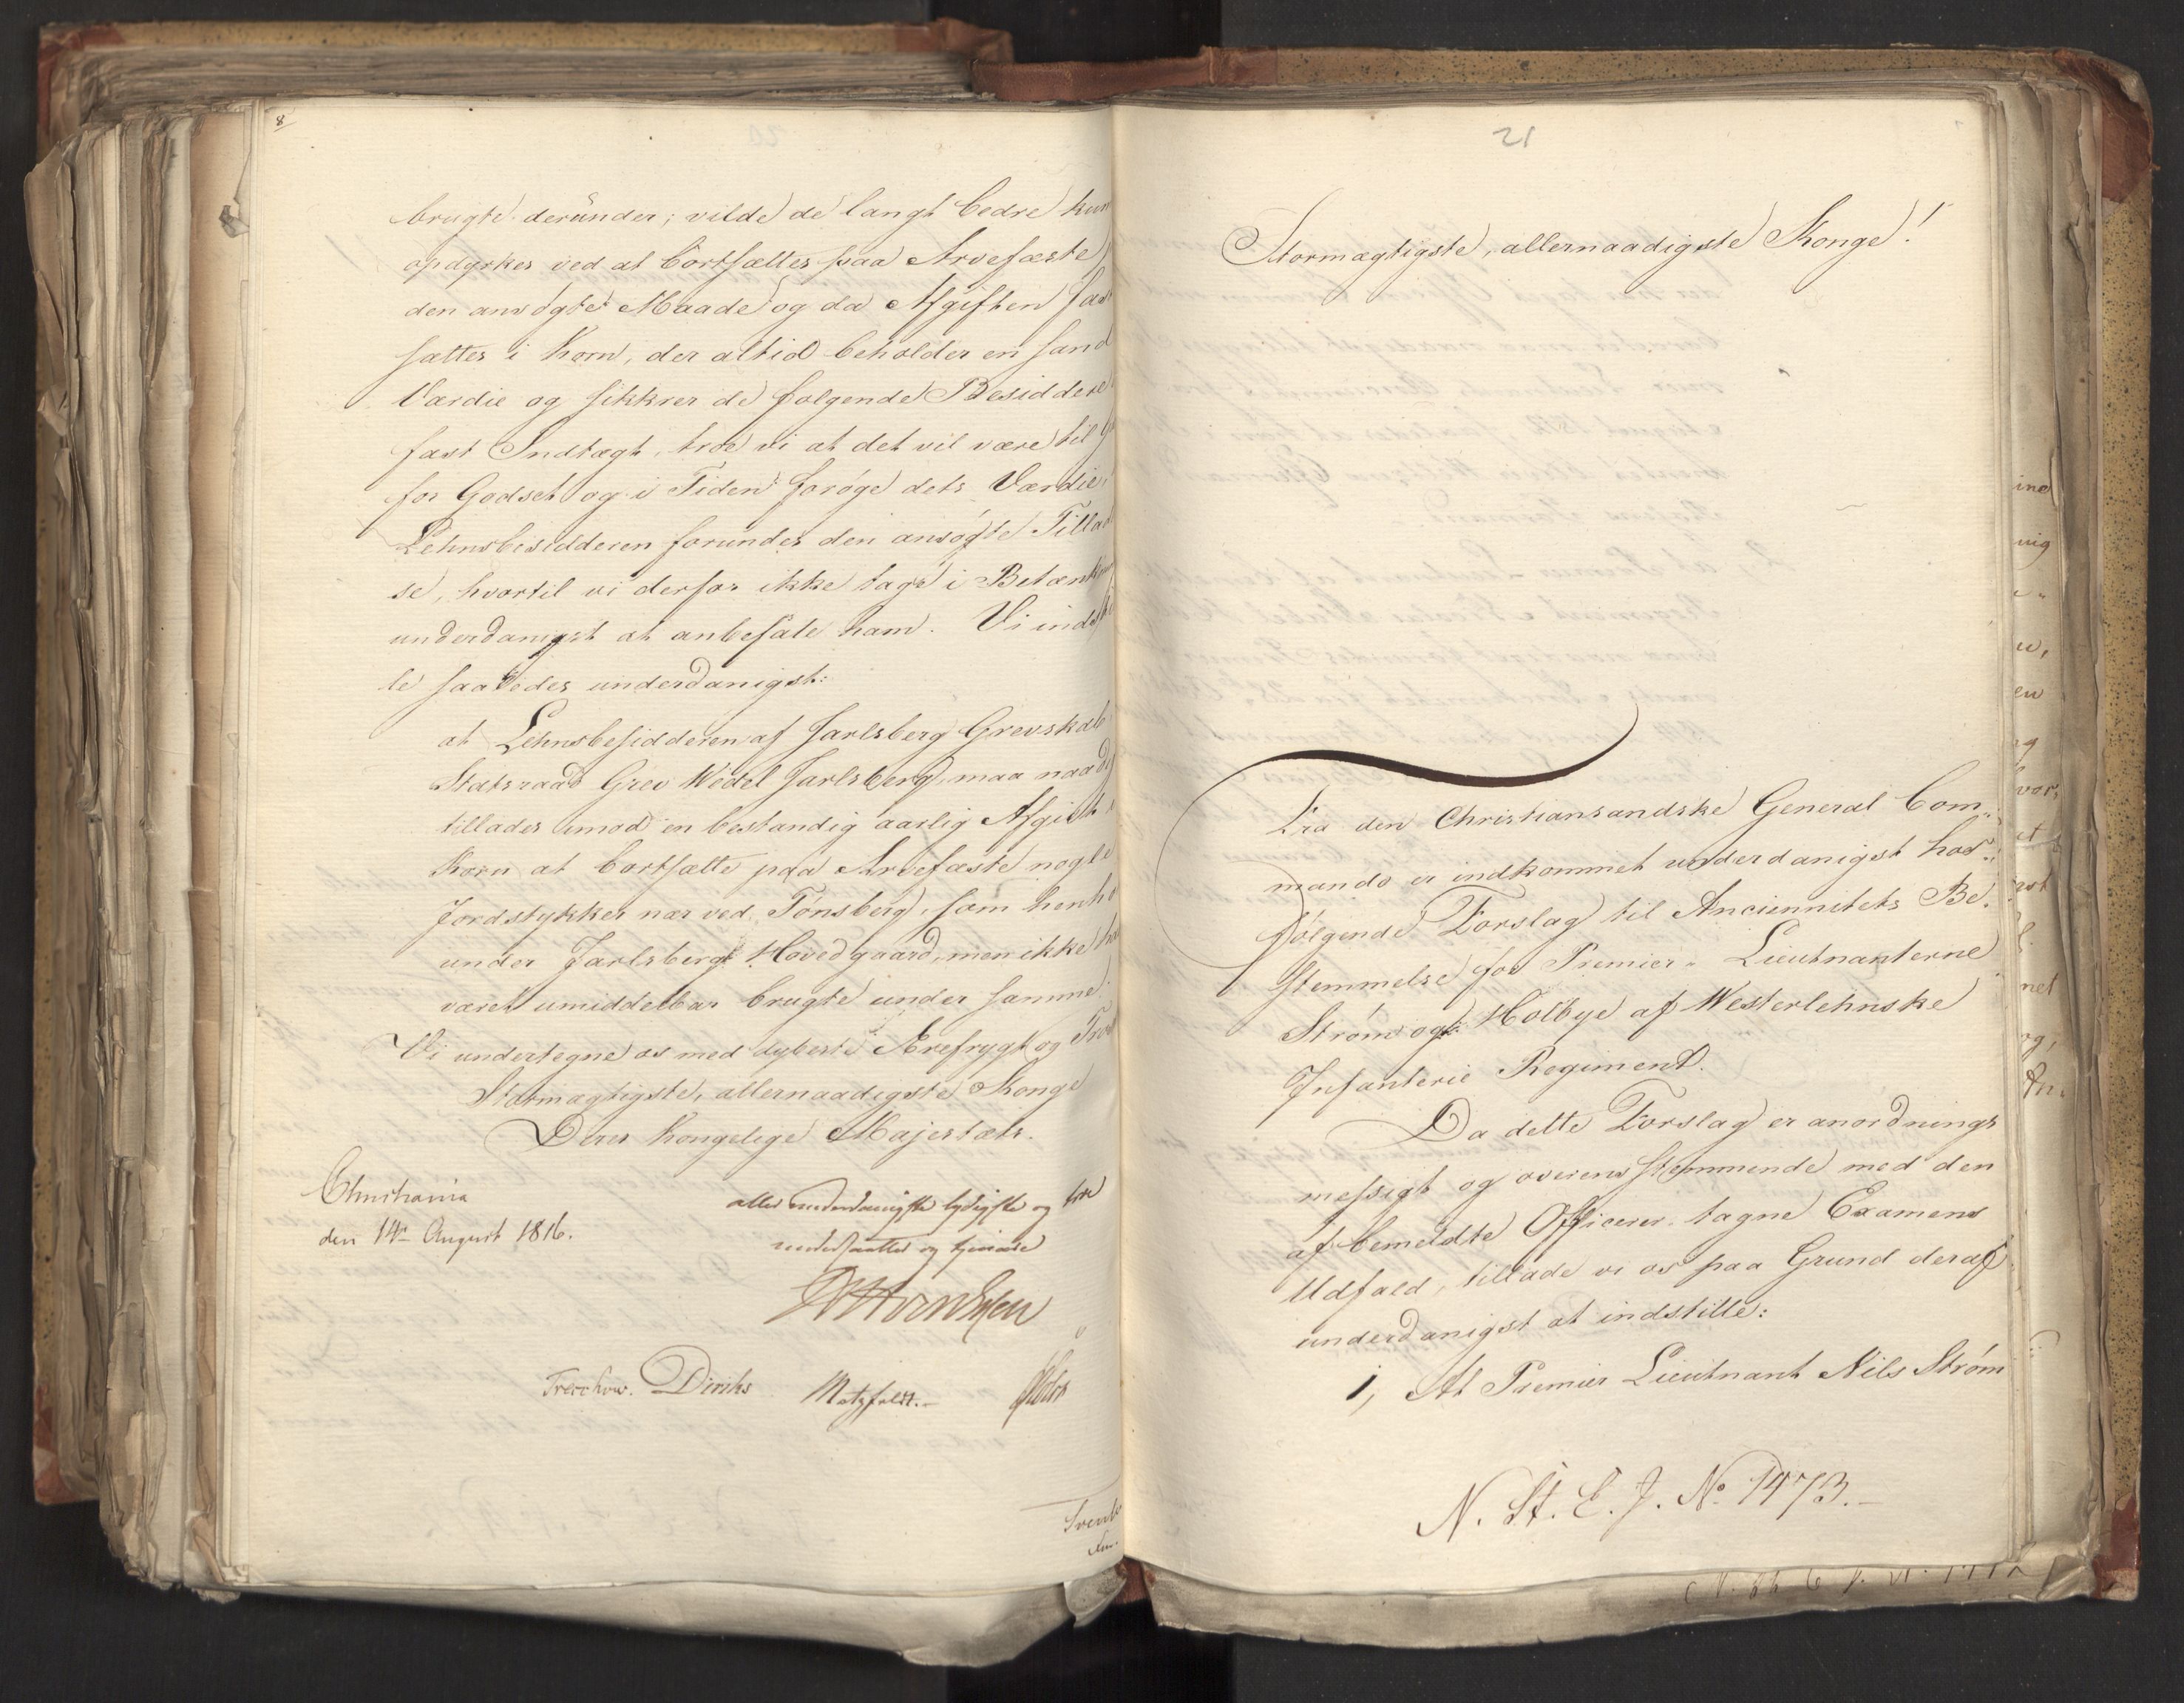 8
brugte derunder; vilde de langt bedre kun
opdyrkes ved at bortsættes paa Arvefæste
den ansøgte Maade og da Afgiften fast
sættes i Korn, der altid beholder en sand
Værdie og sikkrer de følgende Besiddere
fast Indtægt, troe vi at det vil være til
for Godset og i Tiden forøge dets Værdie
Lehnsbesidderen forundes den ansøgte Tillad
se, hvortil vi derfor ikke tage i Betænk
underdanigst at anbefale ham. Vi indstil
le saaledes underdanigst:
at Lehnsbesidderen af Jarlsberg Grevskab
Statsraad Grev Wedel Jarlsberg, maa naad
tillades imod en bestandig aarlig Afgivt
Korn at bortsætte paa Arvefæste nogle
Jordstykker nær ved Tønsberg, som henhø
under Jarlsbergs Hovedgaard, men ikke ha
været umiddelbar brugte under samme.
Vi undertegne os med dybeste Ærefrygt og Tro
Stormægtigste, allernaadigste Konge
Deres Kongelige Majestæts.
Christiania
den 14de August 1816.
allerunderdanigste lydigste og troe
undersaatter og tjenere
Treschow. Diriks Motzfeldt.
21
Stormægtigste, allernaadigste Konge!
Fra den Christiansandske General Com-
mando er indkommet underdanigst hos-
følgende Forslag til Anciennitets Be-
stemmelse for Premier-Lieutnanterne
Strøm og Holbye af Westerlehnske
Infanterie Regiment.
Da dette Forslag er anordnings
mæssigt og overensstemmende med den
af bemeldte Officerer tagne Examens
Udfald, tillade vi os paa Grund deraf
underdanigst at indstille:
1, At Premier Lieutnant Nils Strøm
N. St. E. J. No 1473.